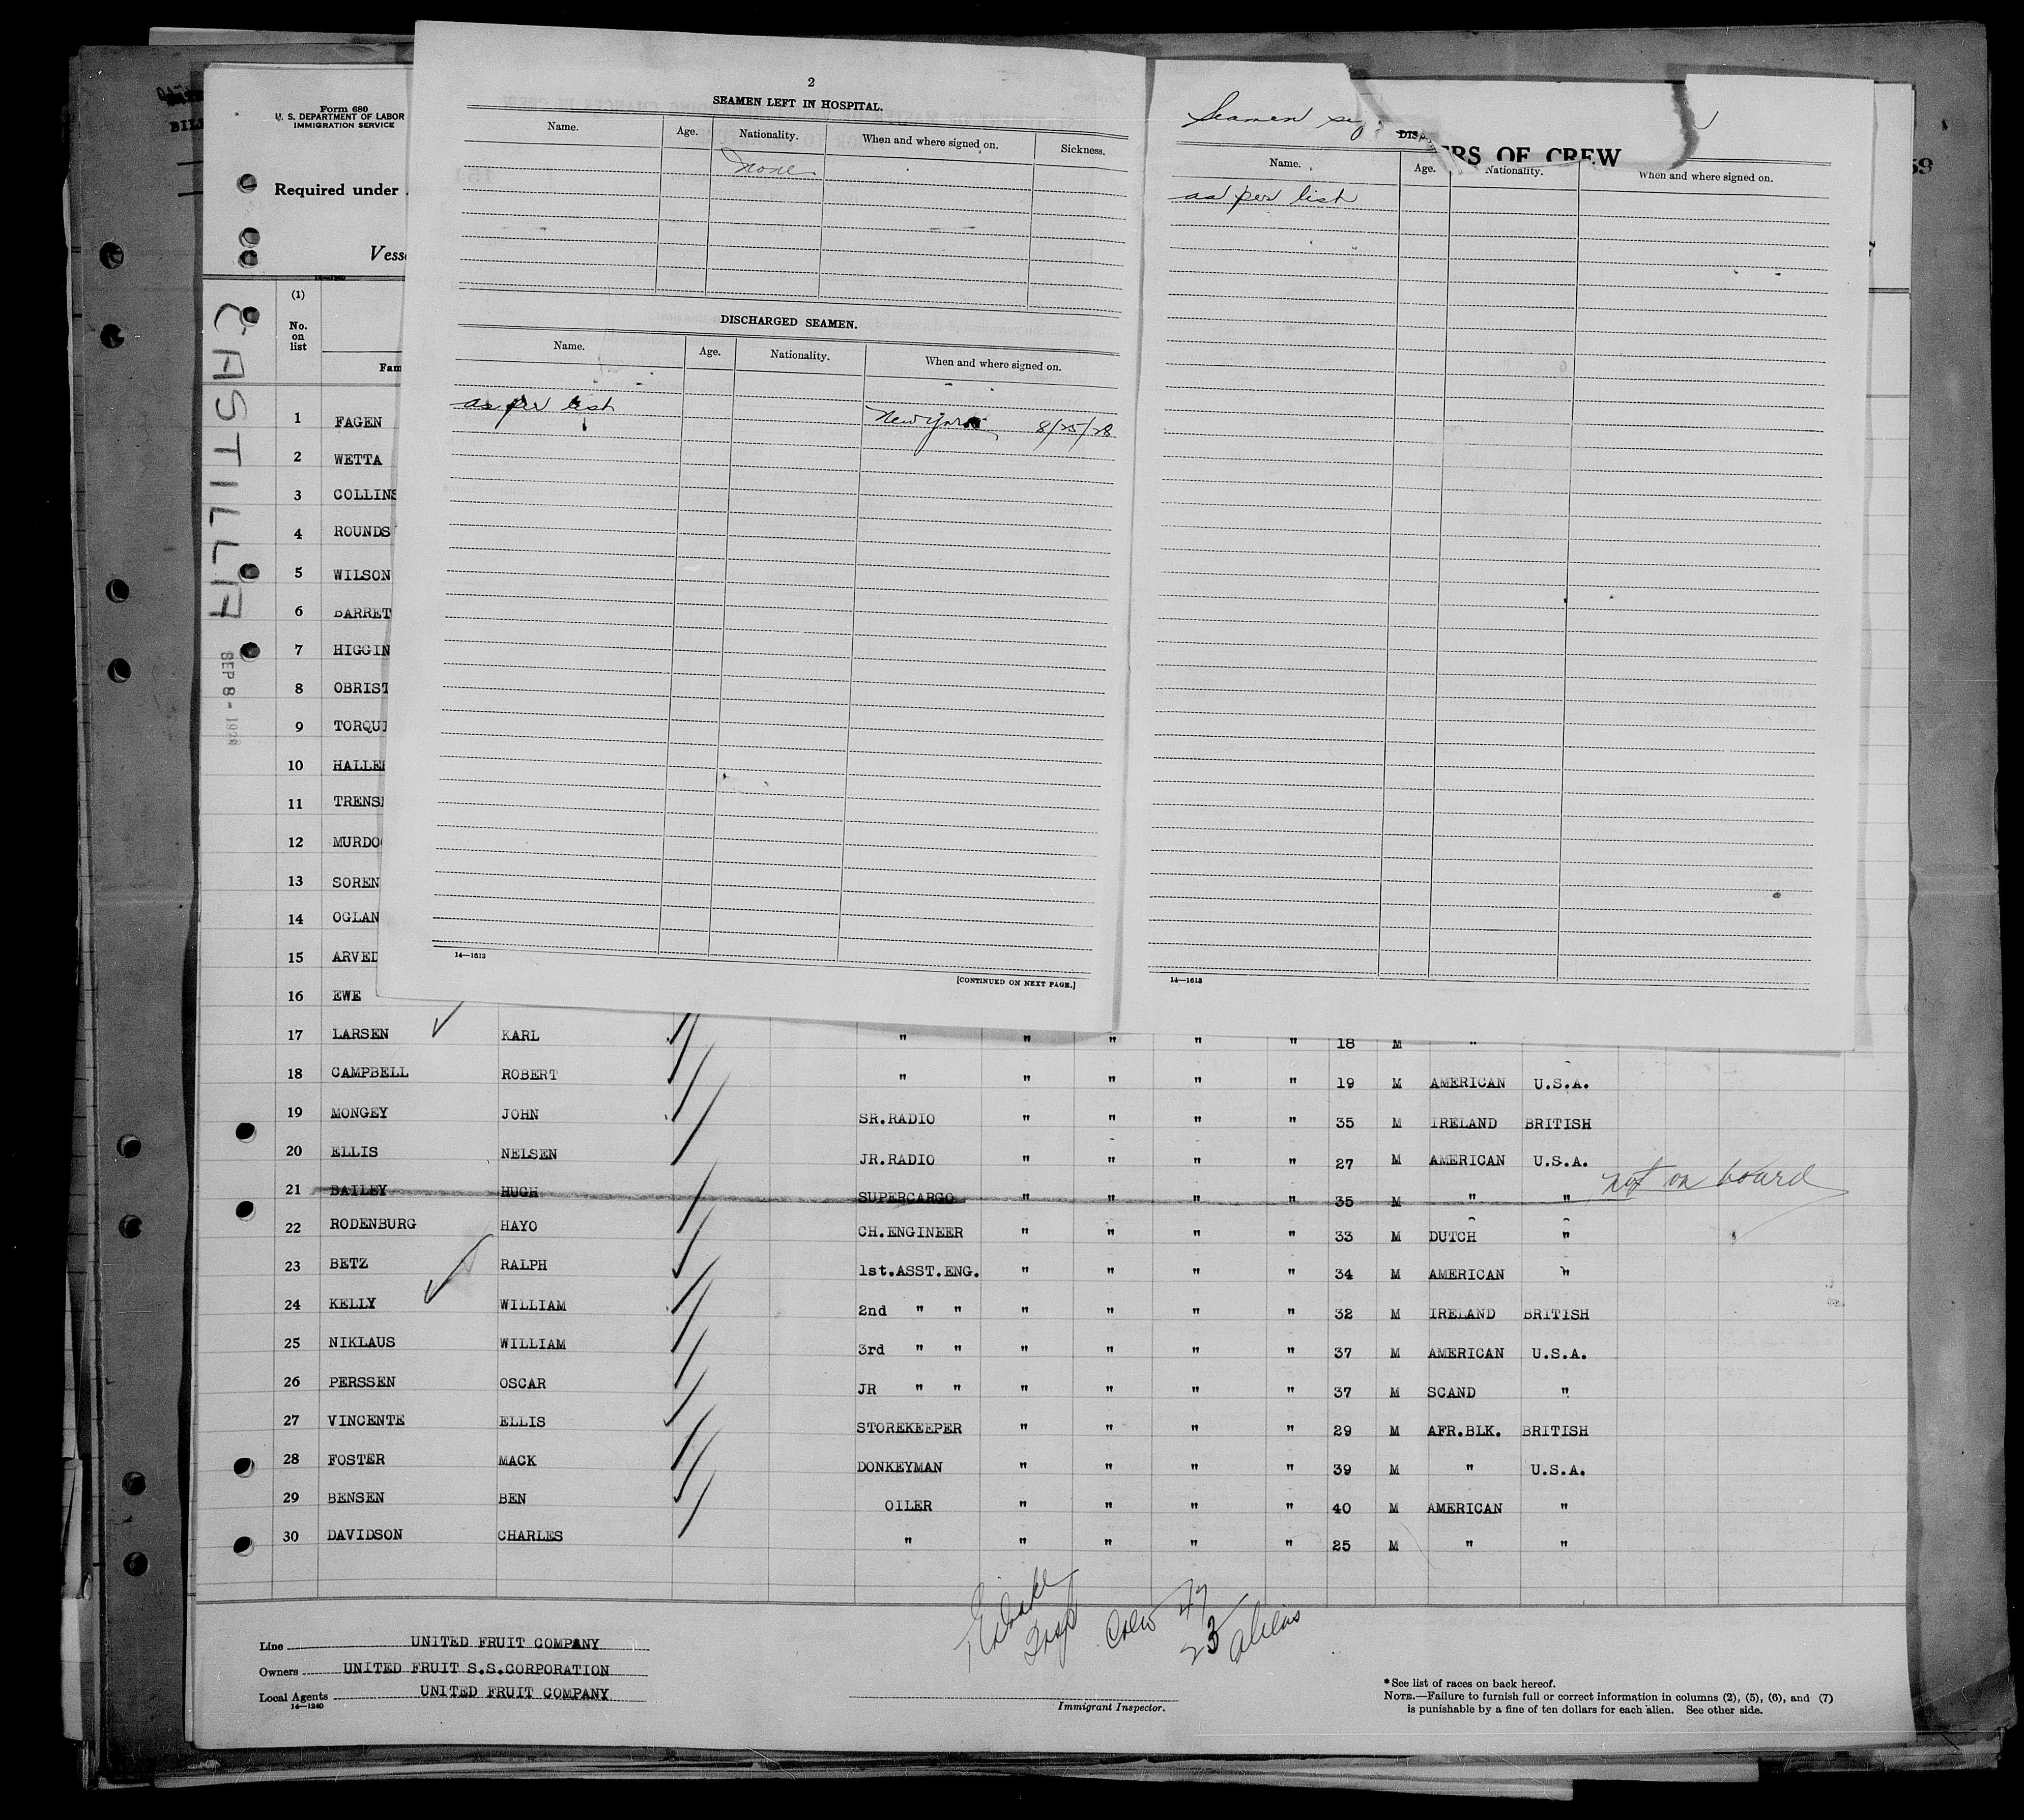 2
SEAMEN LEFT IN HOSPITAL.
Name. Age. Nationality. When and where signed on. Sickness.
None
DISCHARGED SEAMEN.
Name. Age. Nationality. When and where signed on.
as per list New York 8/25/28
14—1613
[CONTINUED ON NEXT PAGE.]
Seamen
ERS OF CREW
Name. Age. Nationality. When and where signed on.
as per list
14—1613
Form 680
U. S. DEPARTMENT OF LABOR
IMMIGRATION SERVICE
Required under
CASTILLA
SEP 8 - 1928
(1)
No.
on
list
1 FAGEN
2 WETTA
3 COLLINS
4 ROUNDS
5 WILSON
6 BARRET
7 HIGGIN
8 OBRIST
9 TORQUI
10 HALLE
11 TRENS
12 MURDO
13 SOREN
14 OGLAN
15 ARVED
16 EWE
17 LARSEN KARL " " " " " 18 M "
18 CAMPBELL ROBERT " " " " " 19 M AMERICAN U.S.A.
19 MONGEY JOHN SR.RADIO " " " " 35 M IRELAND BRITISH
20 ELLIS NELSEN JR.RADIO " " " " 27 M AMERICAN U.S.A.
21 BAILEY HUGH SUPERCARGO " " " " 35 M " " not on board
22 RODENBURG HAYO CH.ENGINEER " " " " 33 M DUTCH "
23 BETZ RALPH 1st.ASST.ENG. " " " " 34 M AMERICAN "
24 KELLY WILLIAM 2nd " " " " " " 32 M IRELAND BRITISH
25 NIKLAUS WILLIAM 3rd " " " " " " 37 M AMERICAN U.S.A.
26 PERSSEN OSCAR JR " " " " " " 37 M SCAND "
27 VINCENTE ELLIS STOREKEEPER " " " " 29 M AFR.BLK. BRITISH
28 FOSTER MACK DONKEYMAN " " " " 39 M " U.S.A.
29 BENSEN BEN OILER " " " " 40 M AMERICAN "
30 DAVIDSON CHARLES " " " " " 25 M " "
Crew 47
23 aliens
Line UNITED FRUIT COMPANY
Owners UNITED FRUIT S.S.CORPORATION
Local Agents UNITED FRUIT COMPANY
14—1240
Immigrant Inspector.
* See list of races on back hereof.
NOTE.—Failure to furnish full or correct information in columns (2), (5), (6), and (7)
is punishable by a fine of ten dollars for each alien. See other side.